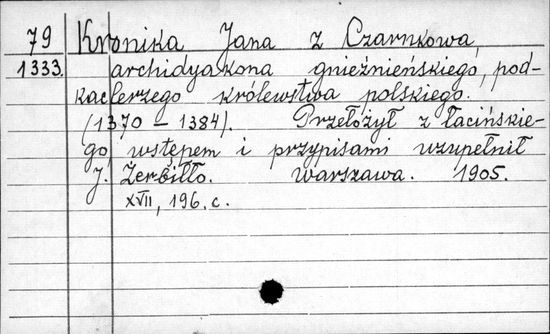 79 Kronika Jana z Czarnkowa,
1333. archidyakona gnieźnieńskiego, pod-
kaclerzego królewstwa polskiego.
(1370 – 1384). Przełożył z łacińskie-
go, wstępem i przypisami uzupełnił
J. Żerbiłło. Warszawa. 1905.
XVII, 196. c.